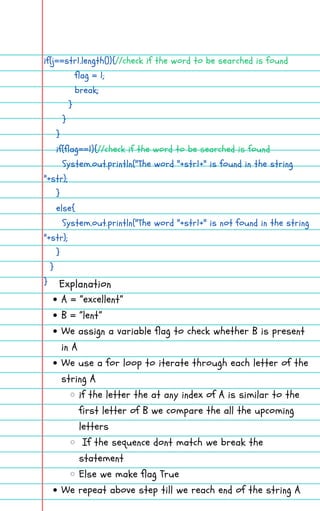 if(j==str1.length()){//check if the word to be searched is found
flag = 1;
break;
}
}
}
if(flag==1){//check if the word to be searched is found
System.out.println("The word "+str1+" is found in the string
"+str);
}
else{
System.out.println("The word "+str1+" is not found in the string
"+str);
}
}
}
Explanation
• A = "excellent"
• B = "lent"
• We assign a variable flag to check whether B is present
in A
• We use a for loop to iterate through each letter of the
string A
○ if the letter the at any index of A is similar to the
first letter of B we compare the all the upcoming
letters
○ If the sequence dont match we break the
statement
○ Else we make flag True
• We repeat above step till we reach end of the string A